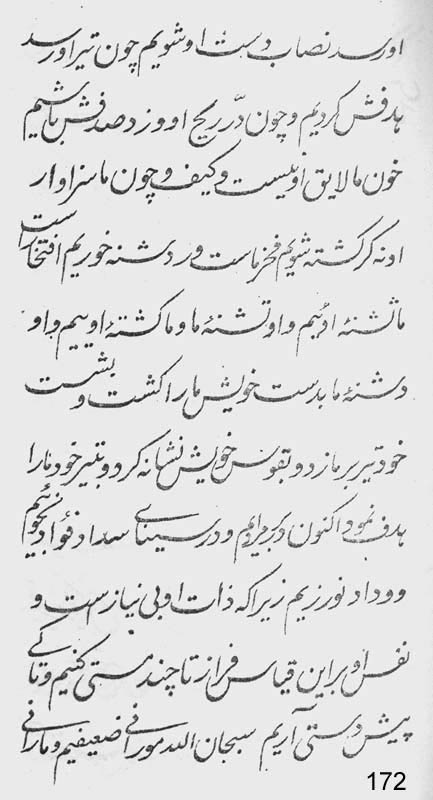 او رسد نصاب دست او شویم چون تیر او رسد
هدف کردیم و چون درّ ریح او وزد صدفش باشیم
خون ما لایق او نیست و کیف و چون ما سزاوار
او نه گر کشته شویم فخر ماست ور دشنه خوریم افتخار است
ما تشنهٔ اوئیم و او تشنهٔ ما و ما کشتهٔ اوییم و او
دشنهٔ ما بدست خویش ما را کشت و بشست
خود تیر بر ما زد و بقوس خویش نشانه کرد و بتیر خود ما را
هدف نمود اکنون در و در سینای سداد فؤاد
و وداد نورزیم زیرا که ذات او بی نیاز ست و
نفس او بر این قیاس فراز تا چند مستی کنیم و تا کی
پیش دستی آریم سبحان الله مورانی ضعیفیم و مارانی
172